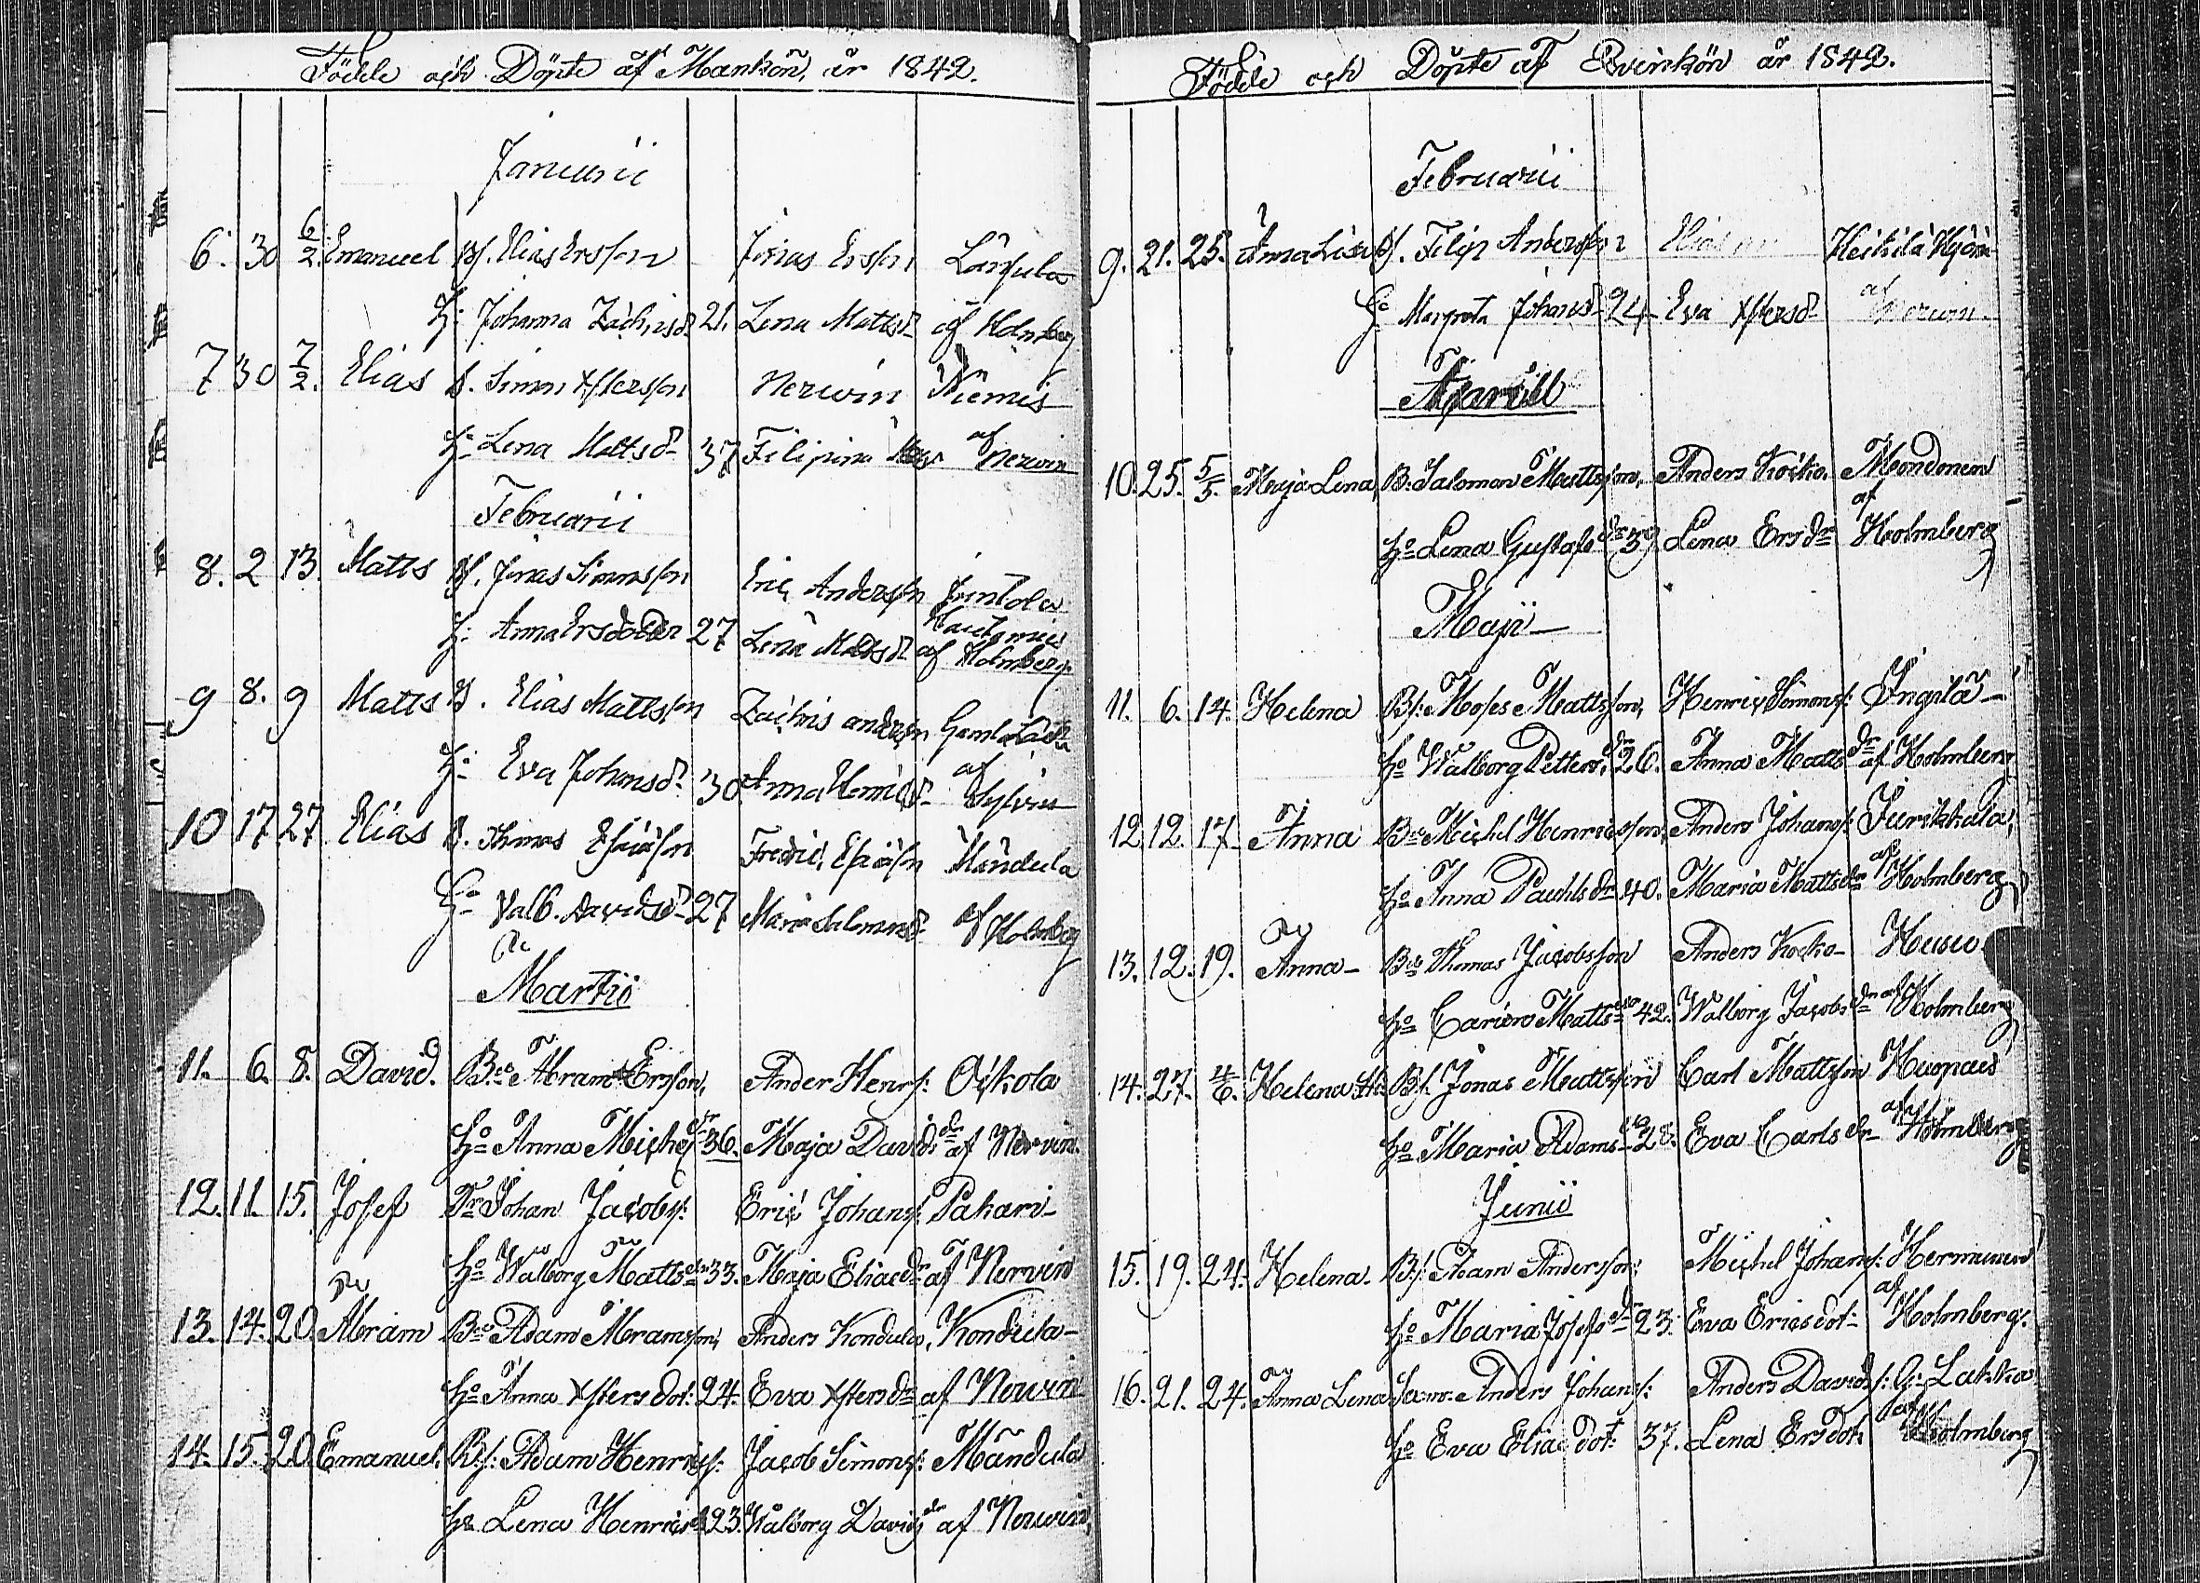 Födde och Döpte af Mankön, år 1842.
Januarii
6. 30 6/2. Emanuel Bs. Elias Ersson Jonas Ersson
H: Johanna Zachrisdr 21. Lena Mattsdr af Holmberg
7 30 7/2. Elias B. Simon Xstersson Nerwin Niemis
Ha Lena Mattsdr 37 Filipina af Nerwin
Februarii
8. 2 13 Matts Bs. Jonas Simonsson Eric Andersson Juntola
Hautamies
H: Anna Ersdotter 27 Lena Mattsdr af Holmberg
9 8. 9 Matts B. Elias Mattsson Zachris Anderssn Gamla
H: Eva Johansdr 30 Anna Henricsdr af Sylvin
10 17 27 Elias B. Thomas Esaiasson Fredric Esaiassn Mändula
Ha Valb. Davidsdr 27 Maria Salomonsdr af Holmberg
Martii
11. 6. 8. David. Bde Abram Ersson, Ander Henrs: Ockola
Ho Anna Michelsdr 36. Maja Davidsdr af Nerwin.
12. 11. 15. Josef Dr Johan Jacobs: Eric Johans: Pakari
Ho Walborg Mattsdr 33. Maja Eliaedr af Nerwin
13. 14. 20. Abram Bde Adam Abramsson, Anders Kondula, Kondula
Ho Anna Xstersdot: 24. Eva Xstersdr af Nerwin
14. 15. 20 Emanuel. Bs: Adam Henrics: Jacob Simons: Mändula
Ho Lena Henricsdr 23. Walborg Davidsdr af Nerwin,
Födde och Döpte af Qvinkön år 1842.
Februarii
9. 21. 25. Anna Lisa Bs. Filip Andersson Elias Heikilä
Ho Margreta Johansdr 24 Eva Xstersdr af Nerwin
Aprill
10. 25. 5/5. Maja Lena, B: Salomon Mattsson, Anders Kocko. Mondonen
af
Ho Lena Gustafsdr 39 Lena Ersdr Holmberg
Maji
11. 6. 14. Helena Bs: Moses Mattsson, Henric Simons: Ingilä
Ho Walborg Pettersdr 26. Anna Mattsdr af Holmberg
12. 12. 17. Anna Bde Michel Henricsson, Anders Johans:
Ho Anna Pauhlsdr 40. Maria Mattsdr af Holmberg
13. 12. 19. Anna Bde Thomas Jacobsson Anders Kocko Husu
Ho Carin Mattsdr 42. Walborg Jacobsdr af Holmberg
14. 27. 4/6. Helena Bs. Jonas Mattsson Carl Mattsson Kuopais
Ho Maria Adamsdr 28. Eva Carlsdr af Holmberg
Junii
15. 19. 24. Helena. Bs: Adam Andersson: Michel Johans: Hermunen
af
Ho Maria Josefsdr 23. Eva Ericsdot Holmberg.
16. 21. 24. Anna Lena Anders Johans: Anders Davids: G: Lakka
Ho Eva Eliaedot: 37. Lena Ersdot. af Holmberg